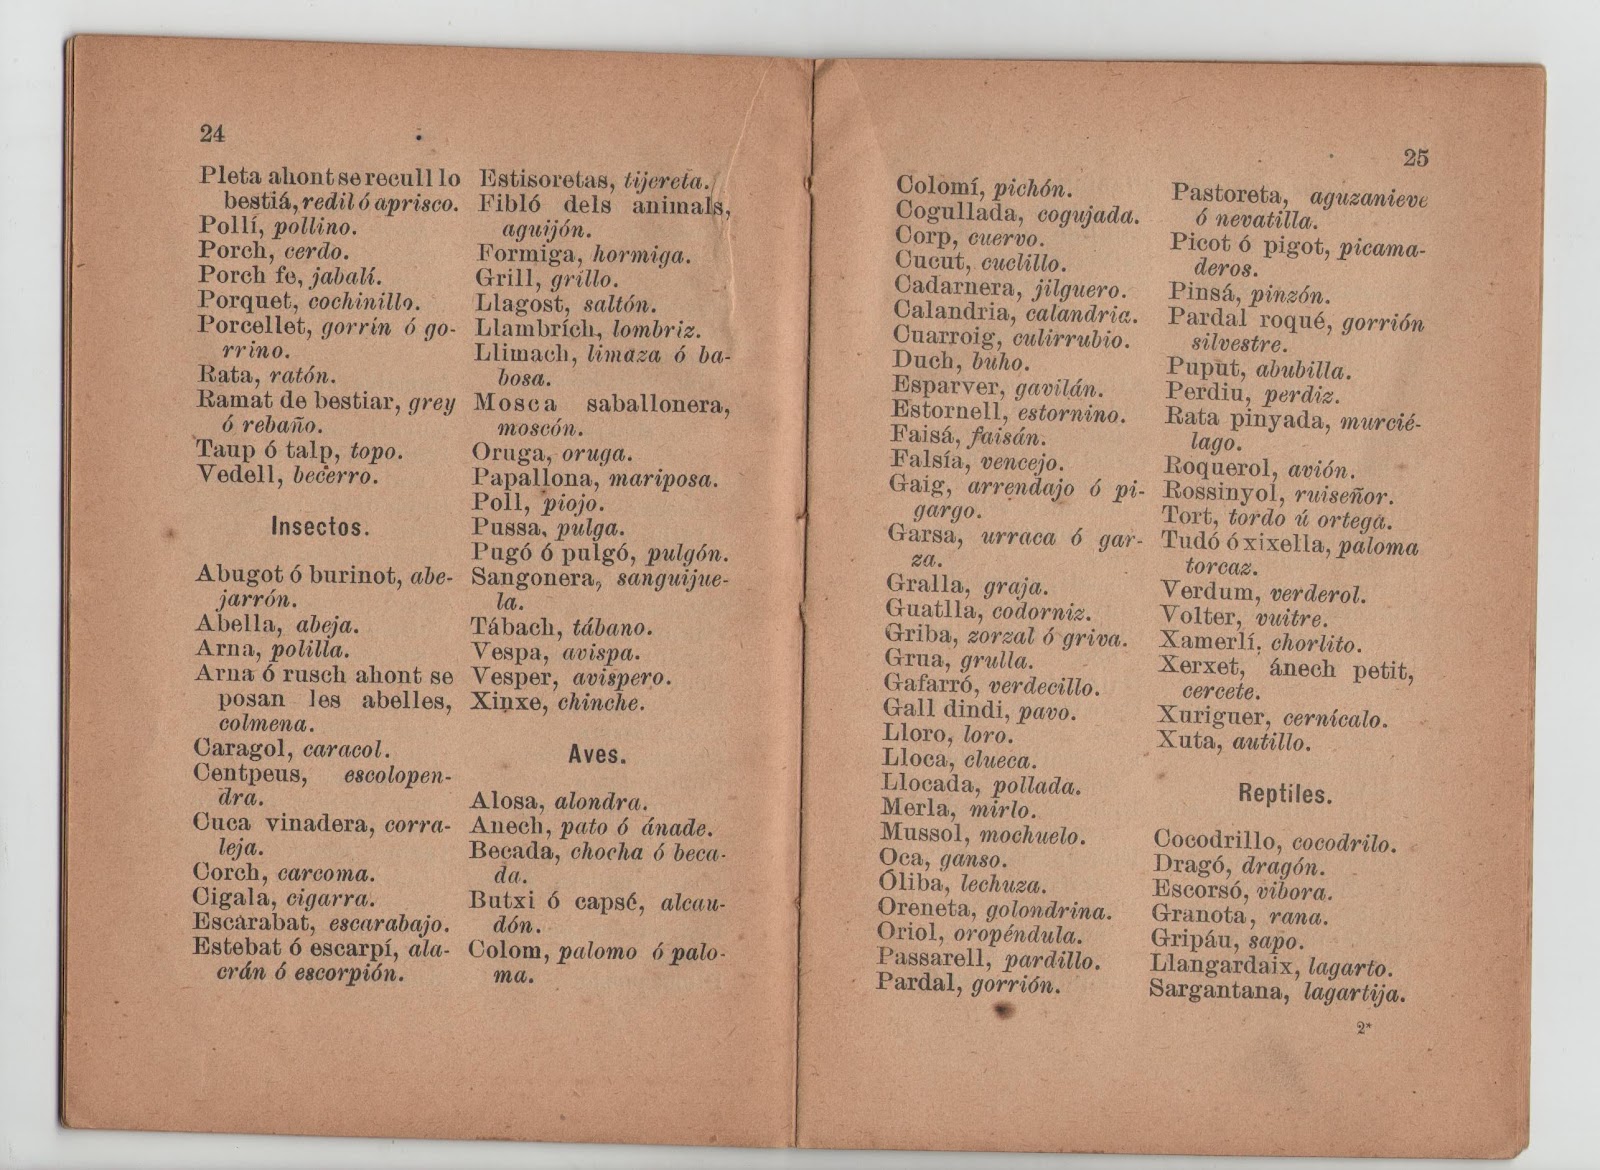 24
Pleta ahont se recull lo
bestiá, redil ó aprisco.
Pollí, pollino.
Porch, cerdo.
Porch fe, jabalí.
Porquet, cochinillo.
Porcellet, gorrín ó go-
rrino.
Rata, ratón.
Ramat de bestiar, grey
ó rebaño.
Taup ó talp, topo.
Vedell, becerro.
Insectos.
Abugot ó burinot, abe-
jarrón.
Abella, abeja.
Arna, polilla.
Arna ó rusch ahont se
posan les abelles,
colmena.
Caragol, caracol.
Centpeus, escolopen-
dra.
Cuca vinadera, corra-
leja.
Corch, carcoma.
Cigala, cigarra.
Escarabat, escarabajo.
Estebat ó escarpí, ala-
crán ó escorpión.
Estisoretas, tijereta.
Fibló dels animals,
aguijón.
Formiga, hormiga.
Grill, grillo.
Llagost, saltón.
Llambrích, lombriz.
Llimach, limaza ó ba-
bosa.
Mosca saballonera,
moscón.
Oruga, oruga.
Papallona, mariposa.
Poll, piojo.
Pussa, pulga.
Pugó ó pulgó, pulgón.
Sangonera, sanguijue-
la.
Tábach, tábano.
Vespa, avispa.
Vesper, avispero.
Xinxe, chinche.
Aves.
Alosa, alondra.
Anech, pato ó ánade.
Becada, chocha ó beca-
da.
Butxi ó capsé, alcau-
dón.
Colom, palomo ó palo-
ma.
25
Colomí, pichón.
Cogullada, cogujada.
Corp, cuervo.
Cucut, cuclillo.
Cadarnera, jilguero.
Calandria, calandria.
Cuarroig, culirrubio.
Duch, buho.
Esparver, gavilán.
Estornell, estornino.
Faisá, faisán.
Falsía, vencejo.
Gaig, arrendajo ó pi-
gargo.
Garsa, urraca ó gar-
za.
Gralla, graja.
Guatlla, codorniz.
Griba, zorzal ó griva.
Grua, grulla.
Gafarró, verdecillo.
Gall dindi, pavo.
Lloro, loro.
Lloca, clueca.
Llocada, pollada.
Merla, mirlo.
Mussol, mochuelo.
Oca, ganso.
Óliba, lechuza.
Oreneta, golondrina.
Oriol, oropéndula.
Passarell, pardillo.
Pardal, gorrión.
Pastoreta, aguzanieve
ó nevatilla.
Picot ó pigot, picama-
deros.
Pinsá, pinzón.
Pardal roqué, gorrión
silvestre.
Puput, abubilla.
Perdiu, perdiz.
Rata pinyada, murcié-
lago.
Roquerol, avión.
Rossinyol, ruiseñor.
Tort, tordo ú ortega.
Tudó ó xixella, paloma
torcaz.
Verdum, verderol.
Volter, vuitre.
Xamerlí, chorlito.
Xerxet, ánech petit,
cercete.
Xuriguer, cernícalo.
Xuta, autillo.
Reptiles.
Cocodrillo, cocodrilo.
Dragó, dragón.
Escorsó, vibora.
Granota, rana.
Gripáu, sapo.
Llangardaix, lagarto.
Sargantana, lagartija.
2*